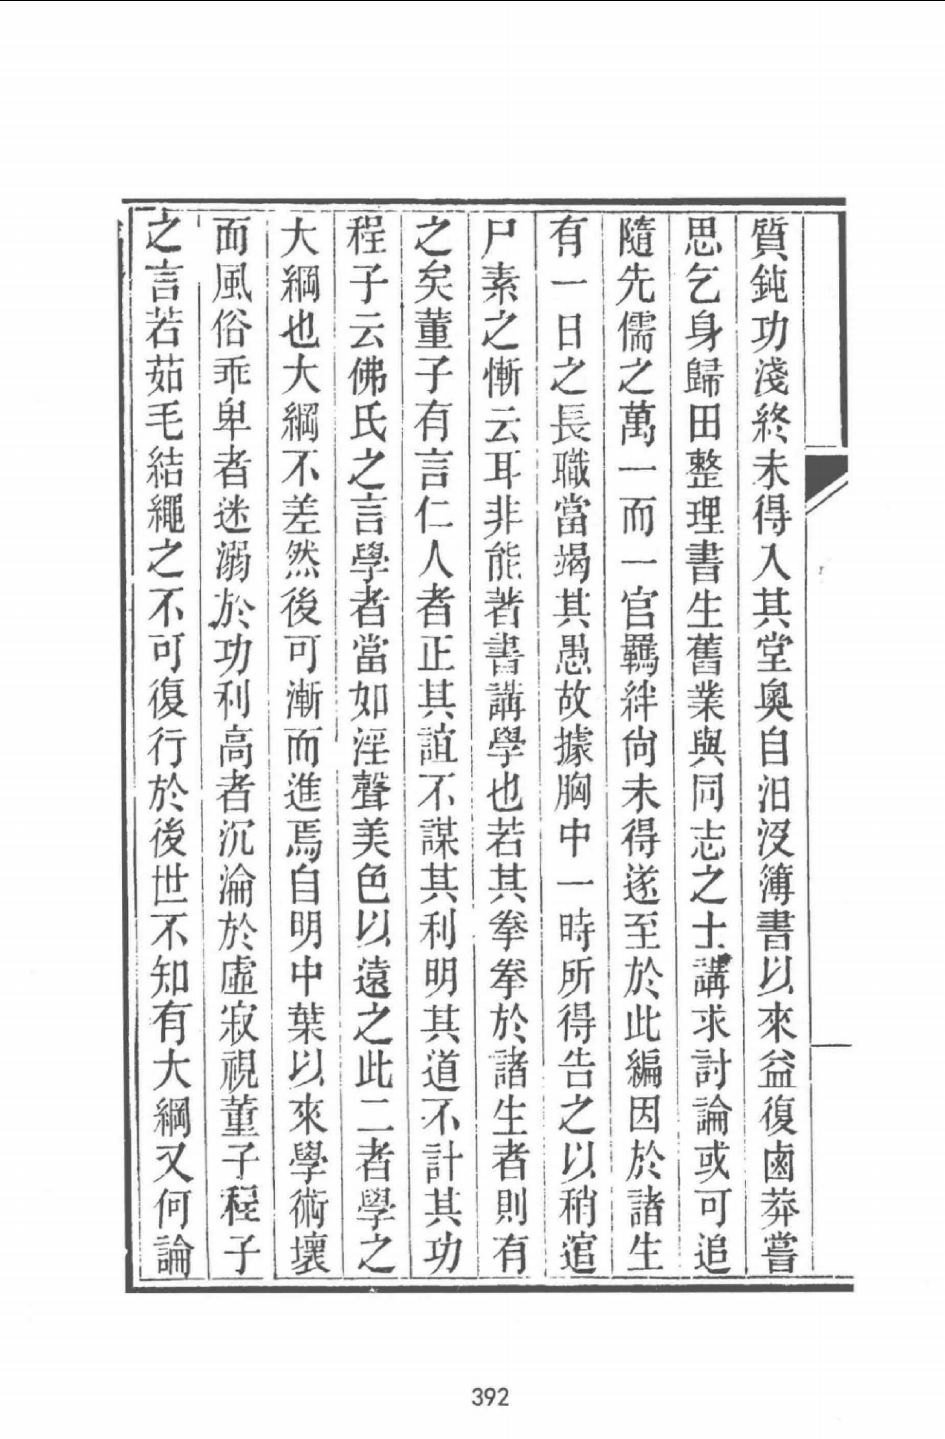 質鈍功淺終未得入其堂奧自汩沒簿書以來益復鹵莽嘗
思乞身歸田整理書生舊業與同志之士講求討論或可追
隨先儒之萬一而一官羈絆尙未得遂至於此編因於諸生
有一日之長職當竭其愚故據胸中一時所得告之以稍逭
尸素之慚云耳非能著書講學也若其拳拳於諸生者則有
之矣董子有言仁人者正其誼不謀其利明其道不計其功
程子云佛氏之言學者當如淫聲美色以遠之此二者學之
大綱也大綱不差然後可漸而進焉自明中葉以來學術壞
而風俗乖卑者迷溺於功利高者沉淪於虛寂視董子程子
之言若茹毛結繩之不可復行於後世不知有大綱又何論
392